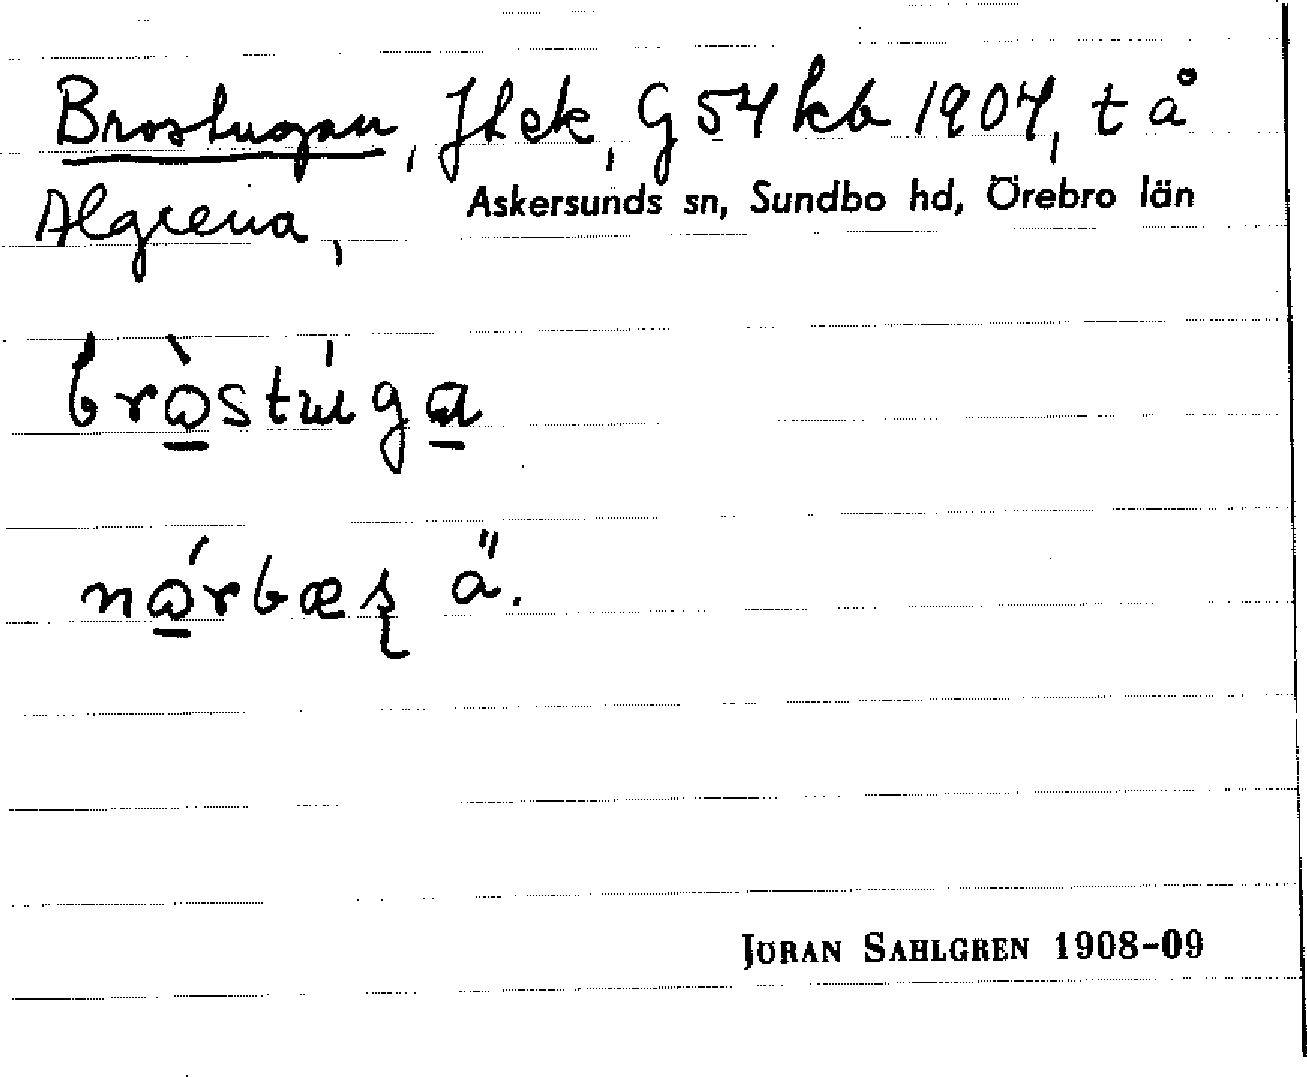 Brostugan, Jl ek, G 54 kb 1904, t å
Algrena, Askersunds sn, Sundbo hd, Örebro län
bròstúga
nórbæȿ ä.
JÖRAN SAHLGREN 1908-09